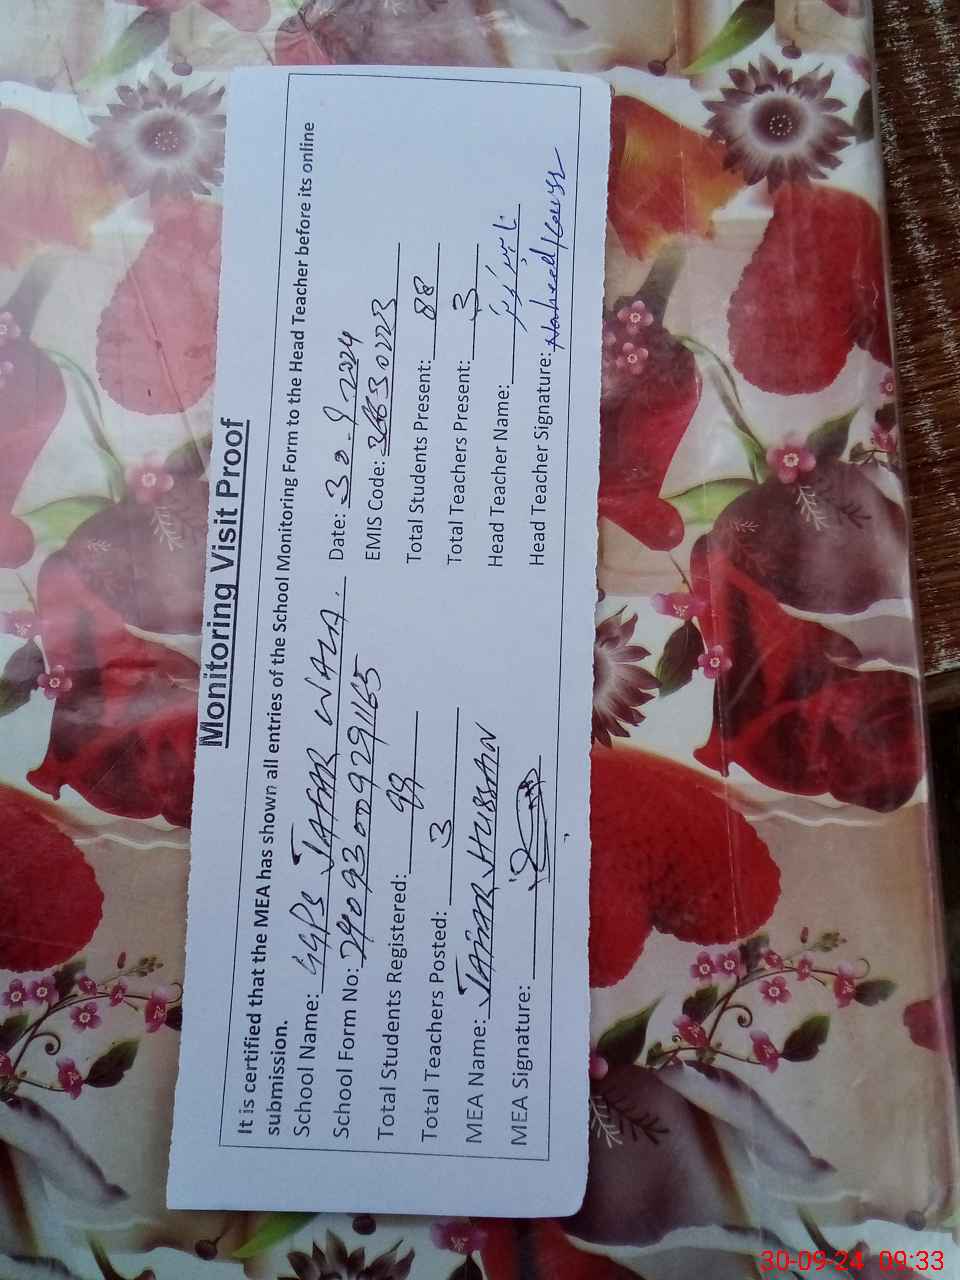 Monitoring Visit Proof
It is certified that the MEA has shown all entries of the School Monitoring Form to the Head Teacher before its online
submission.
School Name: GGPS JAFAR WALA. Date: 30-9-2024
School Form No: EMIS Code:
Total Students Registered: 99 Total Students Present: 88
Total Teachers Posted: 3 Total Teachers Present: 3
MEA Name: JAFAR HUSSAN Head Teacher Name:
MEA Signature: Head Teacher Signature:
30-09-24 09:33